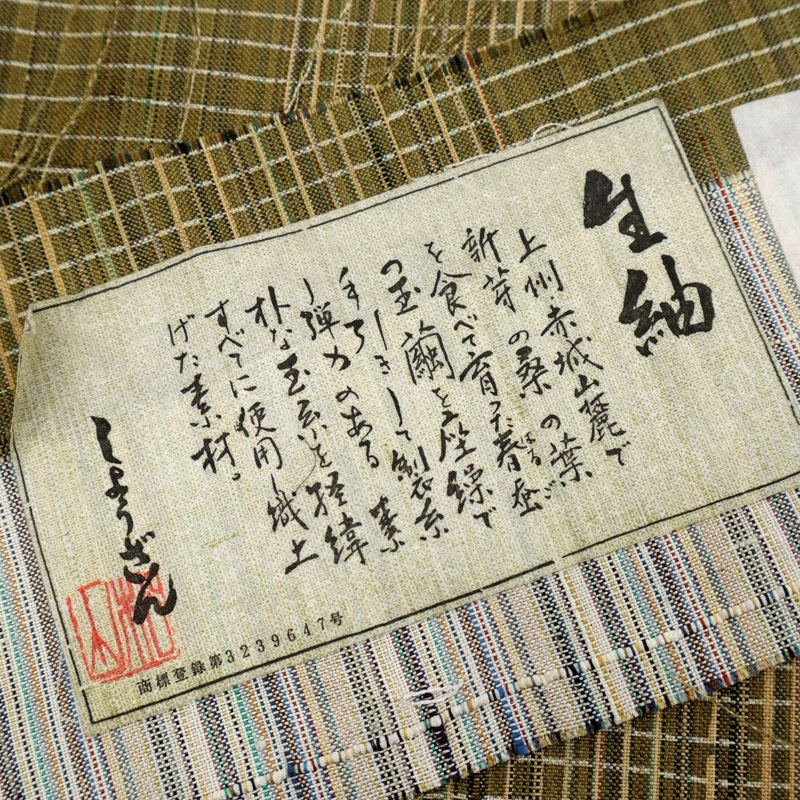 生紬
上州・赤城山麓で
新芽の桑の葉
を食べて育った春蚕
はるご
の玉繭を座繰で
じきじきして製糸
手のある素
し弾力のある
朴な玉糸を経緯
すべてに使用し織上
げた素材。
しょうざん
商標登録第3239647号